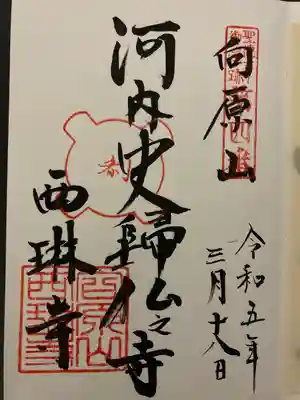 向原山
河内史歸仏之寺
西琳寺
令和五年
三月十八日